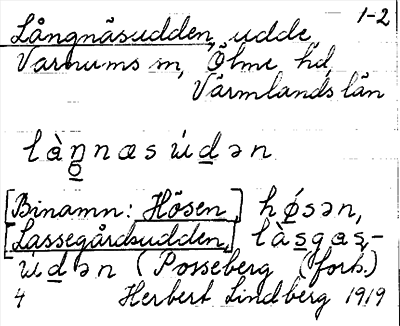 1-2
Långnäsudden, udde
Varnums sn, Ölme hd,
Värmlands län
lànnæsúdən
[Binamn: Hösen] hǿsən,
[Lassegårdsudden,] làsgas-
údən (Posseberg (forts.)
4 Herbert Lindberg 1919